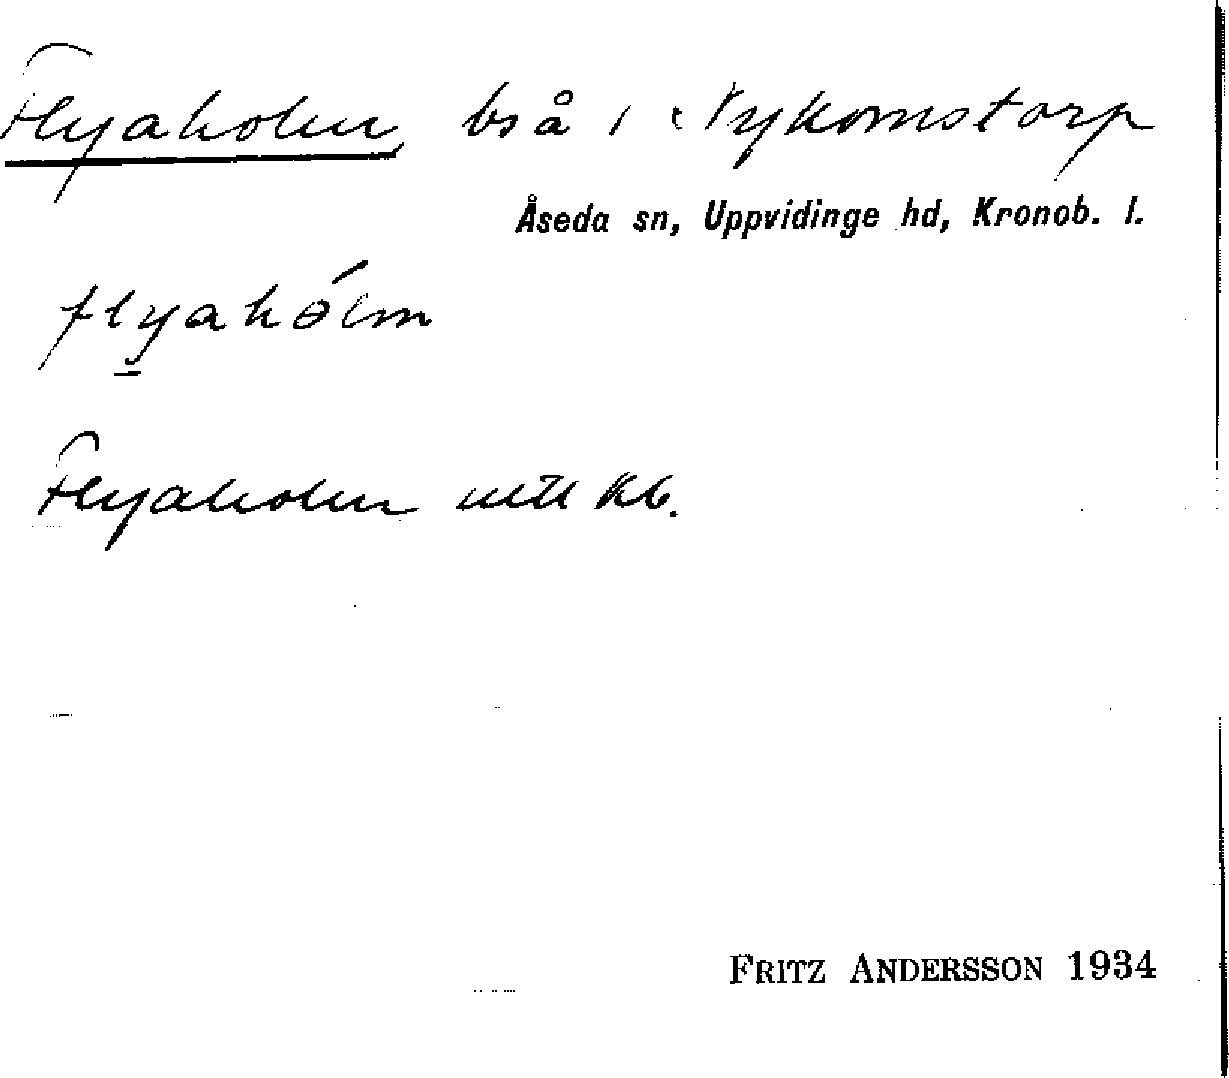 Flyaholm, bs å i Nykomstorp
Åseda sn, Uppvidinge hd, Kronob. l.
flyahólm
Flyaholm utt Kb.
FRITZ ANDERSSON 1934